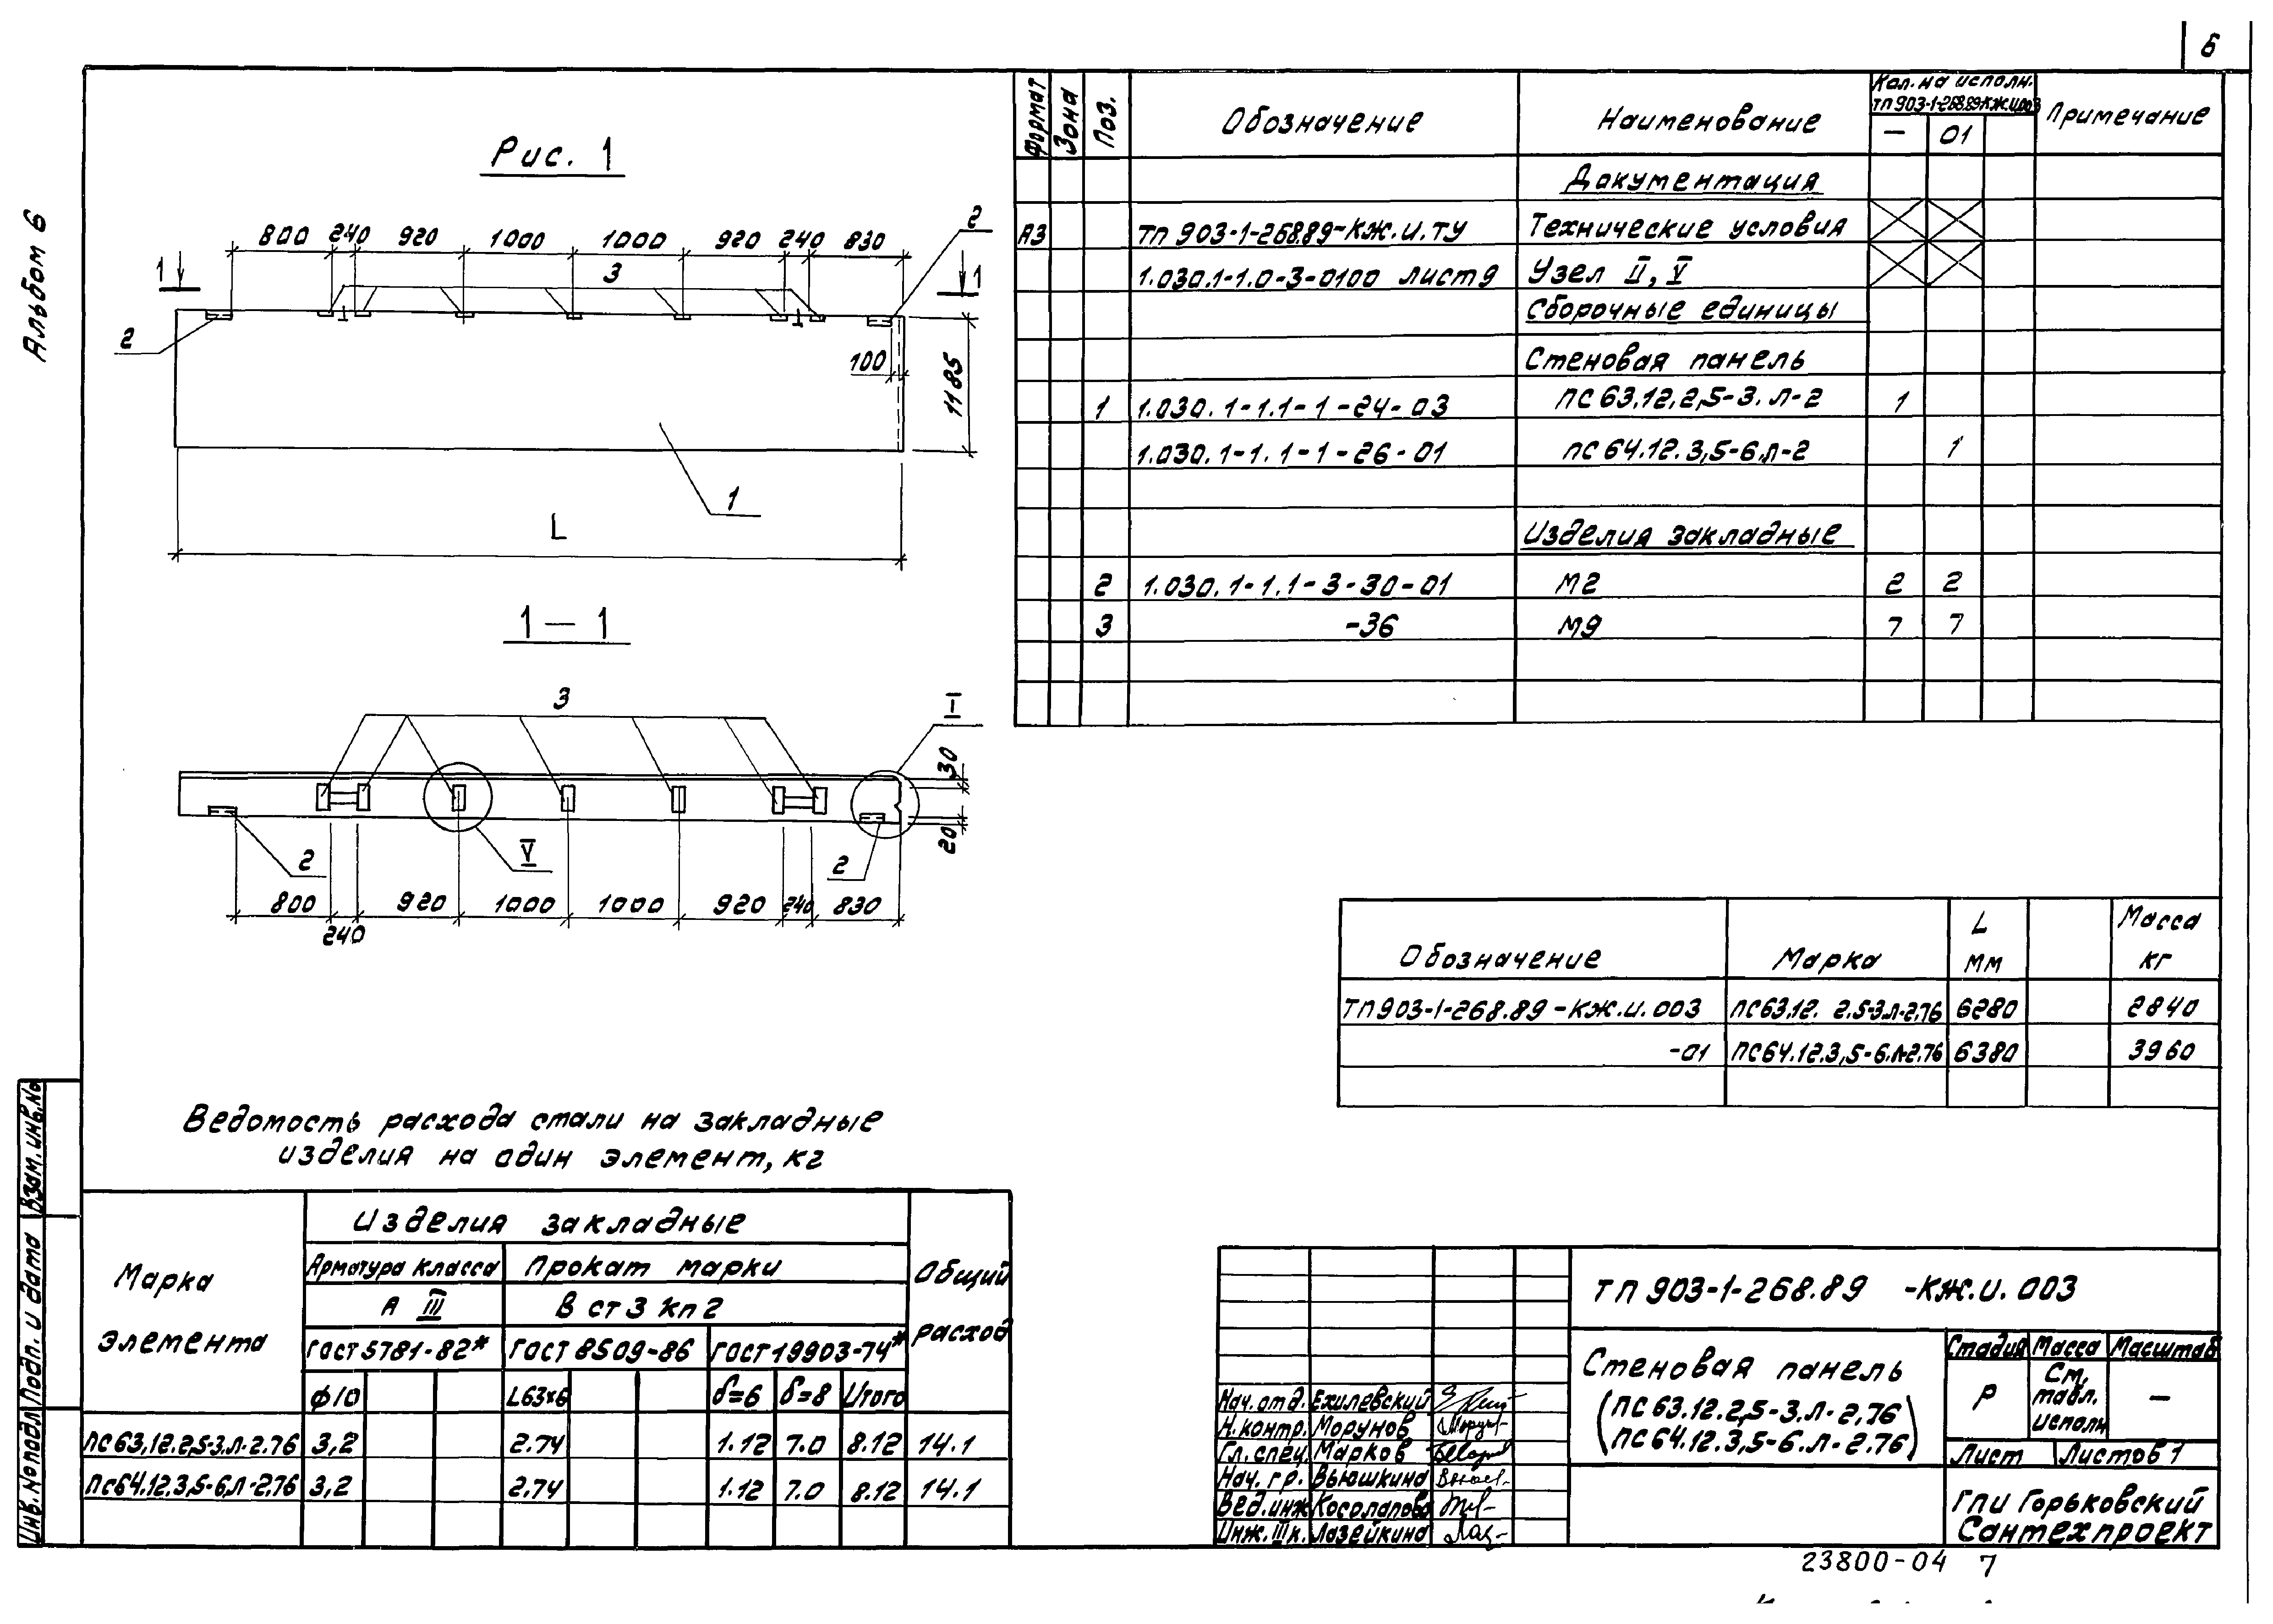 6
Альбом 6
Рис. 1
800 240 920 1000 1000 920 240 830
2
1 3 1
2
100
1185
1
L
1 — 1
3
I
30
20
2 V 2
800 920 1000 1000 920 240 830
240
Формат Зона Поз. Обозначение Наименование Кол. на исполн. ТП 903-1-268.89-КЖ.И.003 Примечание
— 01
Документация
А3 ТП 903-1-268.89-КЖ.И.ТУ Технические условия
1.030.1-1.0-3-0100 лист 9 Узел II, V
Сборочные единицы
Стеновая панель
1 1.030.1-1.1-1-24-03 ПС 63.12.2,5-3.Л-2 1
1.030.1-1.1-1-26-01 ПС 64.12.3,5-6.Л-2 1
Изделия закладные
2 1.030.1-1.1-3-30-01 М2 2 2
3 -36 М9 7 7
Обозначение Марка L мм Масса кг
ТП 903-1-268.89-КЖ.И.003 ПС 63.12.2,5-3.Л-2.76 6280 2840
-01 ПС 64.12.3,5-6.Л-2.76 6380 3960
Ведомость расхода стали на закладные
изделия на один элемент, кг
Марка элемента Изделия закладные Общий расход
Арматура класса Прокат марки
А III В ст 3 кп 2
ГОСТ 5781-82* ГОСТ 8509-86 ГОСТ 19903-74*
ф10 L63х6 δ=6 δ=8 Итого
ПС 63.12.2,5-3.Л-2.76 3,2 2.74 1.12 7.0 8.12 14.1
ПС 64.12.3,5-6.Л-2.76 3,2 2.74 1.12 7.0 8.12 14.1
Взам. инв. №
Подп. и дата
Инв. № подл.
ТП 903-1-268.89 -КЖ.И.003
Стеновая панель
(ПС 63.12.2,5-3.Л-2.76
ПС 64.12.3,5-6.Л-2.76)
Стадия Масса Масштаб
Р См. табл. исполн —
Лист Листов 1
ГПИ Горьковский
Сантехпроект
Нач. отд. Ехилевский
Н. контр. Морунов
Гл. спец. Марков
Нач. гр. Вьюшкина
Вед. инж Косолапова
Инж. III к. Лазейкина
23800-04 7